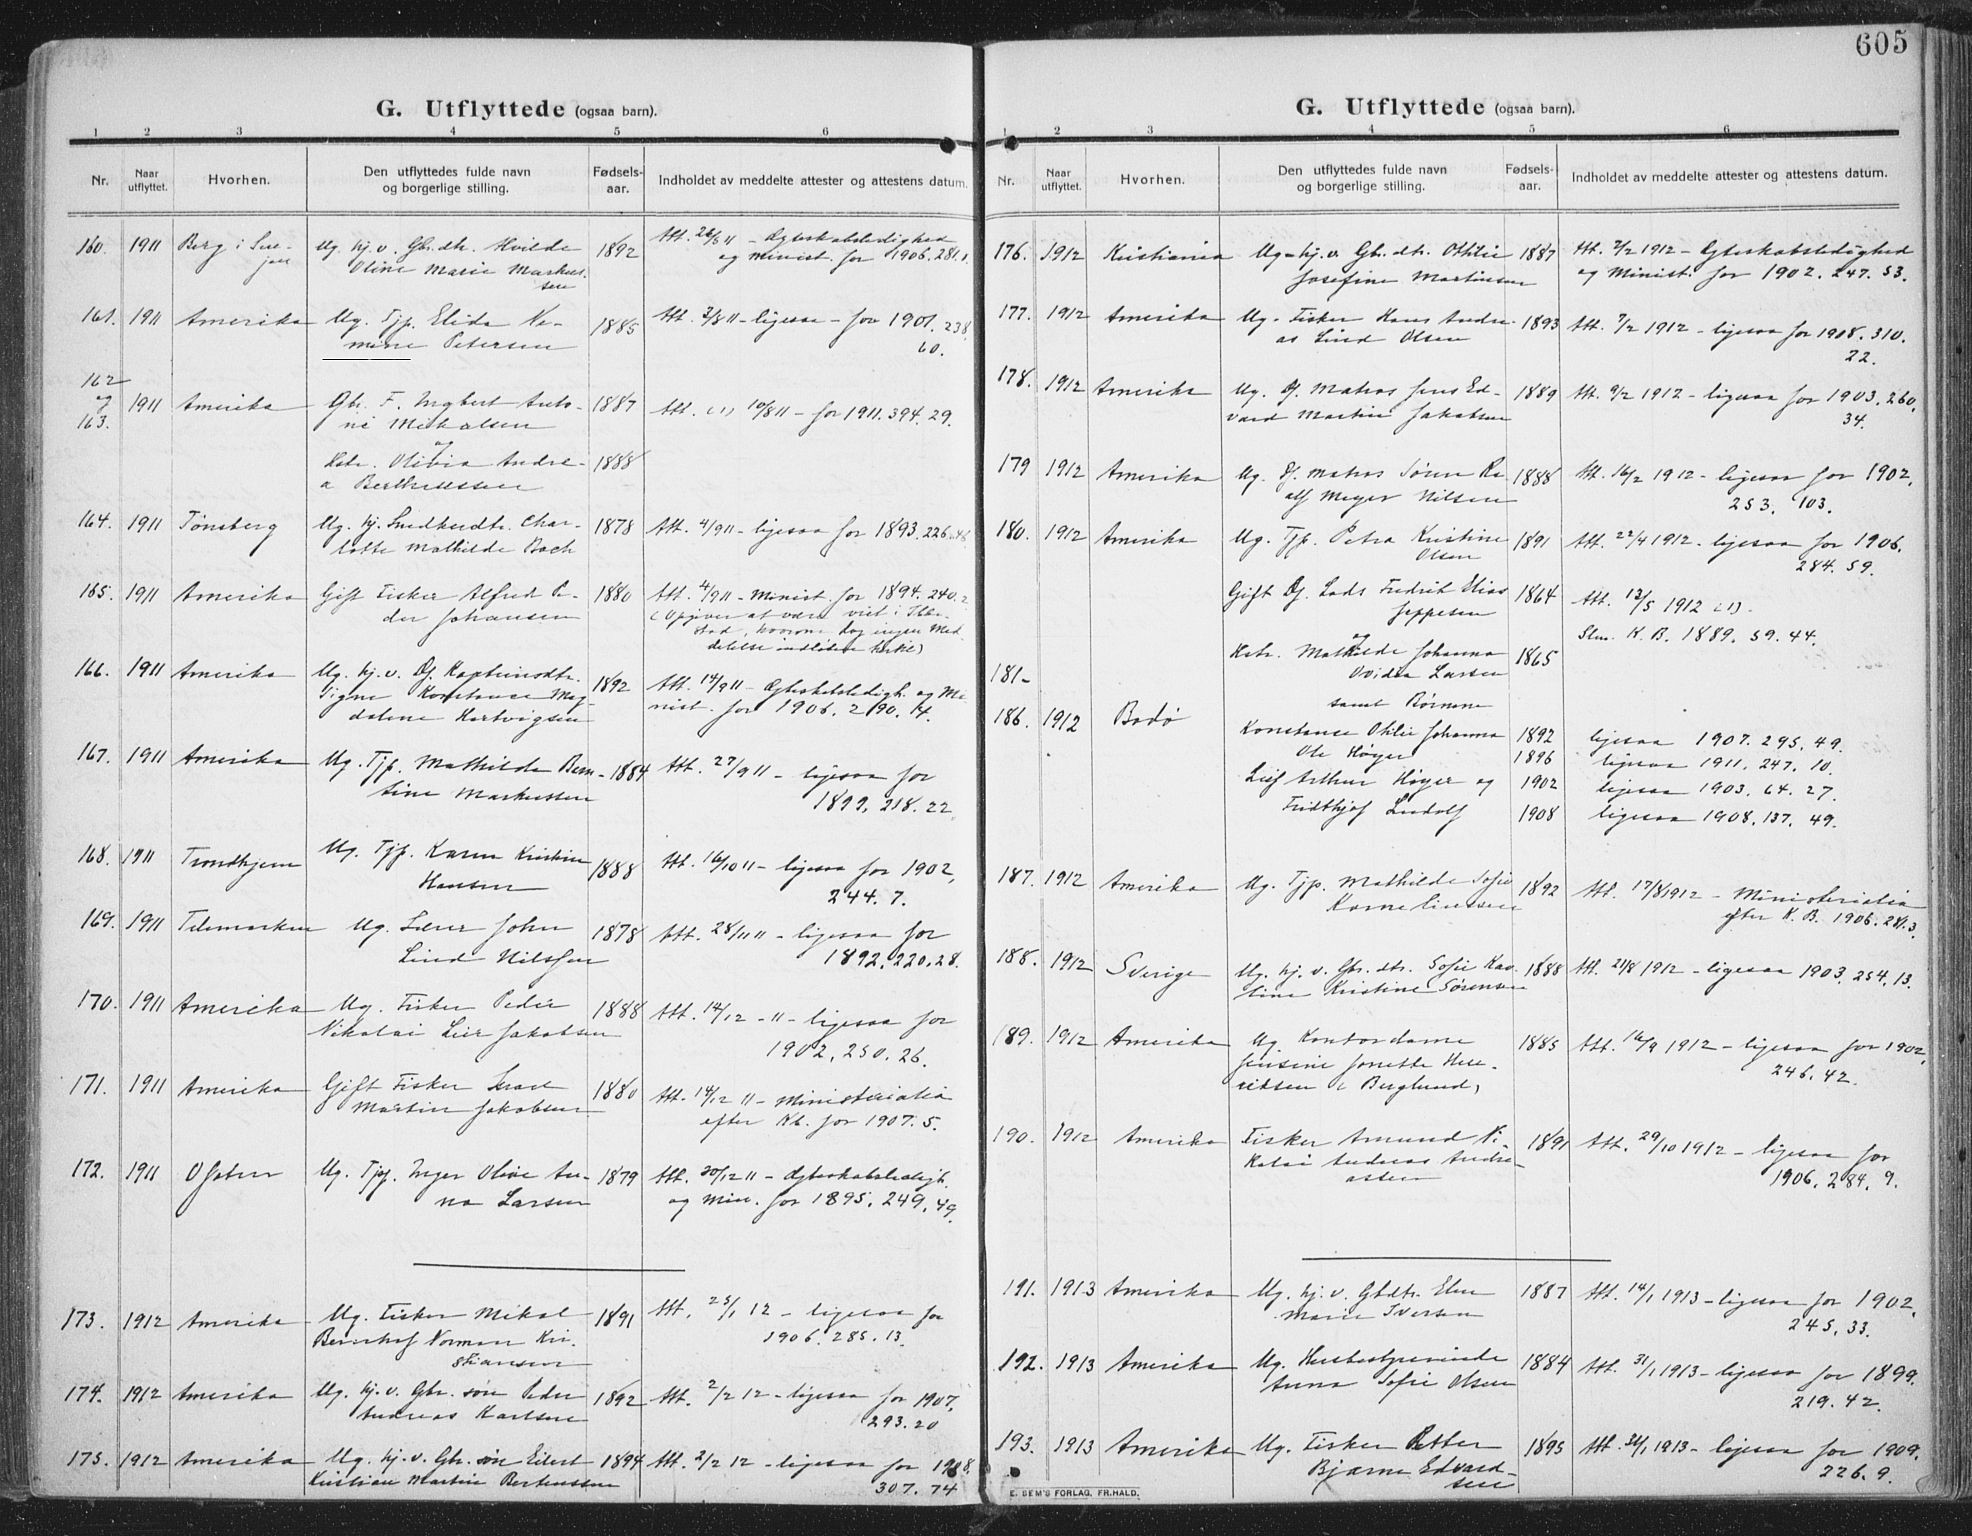 605
G. Utflyttede (ogsaa barn).
1 2 3 4 5 6
Nr. Naar utflyttet. Hvorhen. Den utflyttedes fulde navn og borgerlige stilling. Fødsels-aar. Indholdet av meddelte attester og attestens datum.
160. 1911 Berg i Sen- Ug. hj. v. Gbr. dtr. Hvilda 1892 Att. 26/5 11 – Ægteskabsledighed
jen Oline Marie Markus- og Minist. for 1906. 281.1.
sen
161. 1911 Amerika Ug. Tjp. Elida Na- 1885 Att. 3/8 11 – ligesaa – for 1901. 238.
mine Petersen 60.
162
og 1911 Amerika Gbr. F. Ingbert Anto- 1887 Att. (1) 10/8 11 – for 1911. 394. 29.
163. ni Mikalsen
og
Hstr. Olivia Andre- 1888
a Bertheussen
164. 1911 Tønsberg Ug. hj. Snedkerdtr. Char- 1878 Att. 4/9 11 – ligesaa for 1893. 226.
lotte Mathilde Bach
165. 1911 Amerika Gift Fisker Alfred Pe- 1880 Att. 4/9 11 – Minist. for 1894. 240.
der Johansen (Opgiver at være viet i
stad, hvorom dog ingen Med-
delelse indløben hertil)
166. 1911 Amerika Ug. hj. v. Df. Kapteinsdtr.
Signe Konstanse Mag- 1892 Att. 14/9 11 – Ægteskabsledigh. og Mi-
dalene Hartvigsen nist. for 1906. 290. 14.
167. 1911 Amerika Ug. Tjp. Mathilde Bern- 1884 Att. 27/9 11 – ligesaa for
tine Markussen 1899. 218. 22.
168. 1911 Trondhjem Ug. Tjp. Karen Kristine 1888 Att. 16/10 11 – ligesaa for 1902,
Hansen 244. 7.
169. 1911 Telemarken Ug. Lærer John 1878 Att. 28/11 11 – ligesaa for
Lind Nilssen 1892. 220. 28.
170. 1911 Amerika Ug. Fisker Peder 1888 Att. 14/12 – 11 – ligesaa for
Nikolai Leir Jakobsen 1902, 250. 26.
171. 1911 Amerika Gift Fisker 1880 Att. 14/12 11 – Ministerialia
Martin Jakobsen efter Kb. for 1907. 5.
172. 1911 Ofoten Ug. Tjp. Inger Olive An- 1879 Att. 30/12 11 – Ægteskabsledigh.
na Larsen og Min. for 1895. 249. 49.
173. 1912 Amerika Ug. Fisker Mikal 1891 Att. 25/1 12 – ligesaa for
Bernhof Norman Kri- 1906. 285. 13.
stiansen
174. 1912 Amerika Ug. hj. v. Gbr. søn Peder 1892 Att. 2/2 12 – ligesaa for 1907,
Andreas Karlsen 293. 20
175. 1912 Amerika Ug. hj. v. Gbr. søn Eilert 1894 Att. 2/2 12 – ligesaa for 1908.
Kristian Martin Berteussen 307. 74
G. Utflyttede (ogsaa barn).
1 2 3 4 5 6
Nr. Naar utflyttet. Hvorhen. Den utflyttedes fulde navn og borgerlige stilling. Fødsels-aar. Indholdet av meddelte attester og attestens datum.
176. 1912 Kristiania Ug. hj. v. Gbr. dtr. Othilie 1887 Att. 7/2 1912 – Ægteskabsledighed
Josefine Martinsen og Minist. for 1902. 247. 53.
177. 1912 Amerika Ug. Fisker Hans Andre- 1893 Att. 7/2 1912 – ligesaa for 1908. 310.
as Lind Olsen 22.
178. 1912 Amerika Ug. Df. Matros Jens Ed- 1889 Att. 9/2 1912 – ligesaa for 1903. 260,
vard Martin Jakobsen 34.
179 1912 Amerika Ug. Df. Matros Søren Ro- 1888 Att. 16/2 1912 – ligesaa for 1902,
alf Meyer Nilsen 253. 103.
180. 1912 Amerika Ug. Tjp. Petra Kristine 1891 Att. 22/4 1912 – ligesaa for 1906.
Olsen 284. 59.
Gift Df. Lods Fredrik Elias 1864 Att. 13/5 1912 (1) –
Jeppesen Slm. K. B. 1889. 59. 44.
og
Hstr. Mathilde Johanna 1865
181– Ovidia Larsen
samt Børnene
186. 1912 Bodø Konstanse Othilie Johanna 1892 ligesaa 1907. 295. 49.
Ole Høyer 1896 ligesaa 1911. 247. 10.
Leif Arthur Høyer og 1902 ligesaa 1903. 64. 27.
Fridthjof Ludolf 1908 ligesaa 1908. 137. 49.
187. 1912 Amerika Ug. Tjp. Mathilde Sofie 1892 Att. 17/8 1912 – Ministerialia
Korneliussen efter K. B. 1906. 281. 3.
188. 1912 Sverige Ug. hj. v. Gbr. dtr. Sofie Kar- 1888 Att. 21/8 1912 – ligesaa 1903. 254. 13.
tine Kristine Sørensen
189. 1912 Amerika Ug. Kontordame 1885 Att. 16/9 1912 – ligesaa for 1902,
Jensine Jonette Hen- 246. 42.
riksen (Berglund)
190. 1912 Amerika Fisker Amund Ni- 1891 Att. 29/10 1912 – ligesaa for
kolai Andreas Andre- 1906. 284. 9.
assen
191. 1913 Amerika Ug. hj. v. Gbdtr. Elen 1887 Att. 14/1 1913 – ligesaa for 1902.
Marie Iversen 245. 33.
192. 1913 Amerika Ug. Husbestyrerinde 1884 Att. 31/1 1913 – ligesaa for 1899.
Anna Sofie Olsen 219. 42.
193. 1913 Amerika Ug. Fisker Petter 1895 Att. 31/1 1913 – ligesaa for 1909.
Bjarne Edvard- 226. 9.
sen
E. SEM'S FORLAG, FR.HALD.